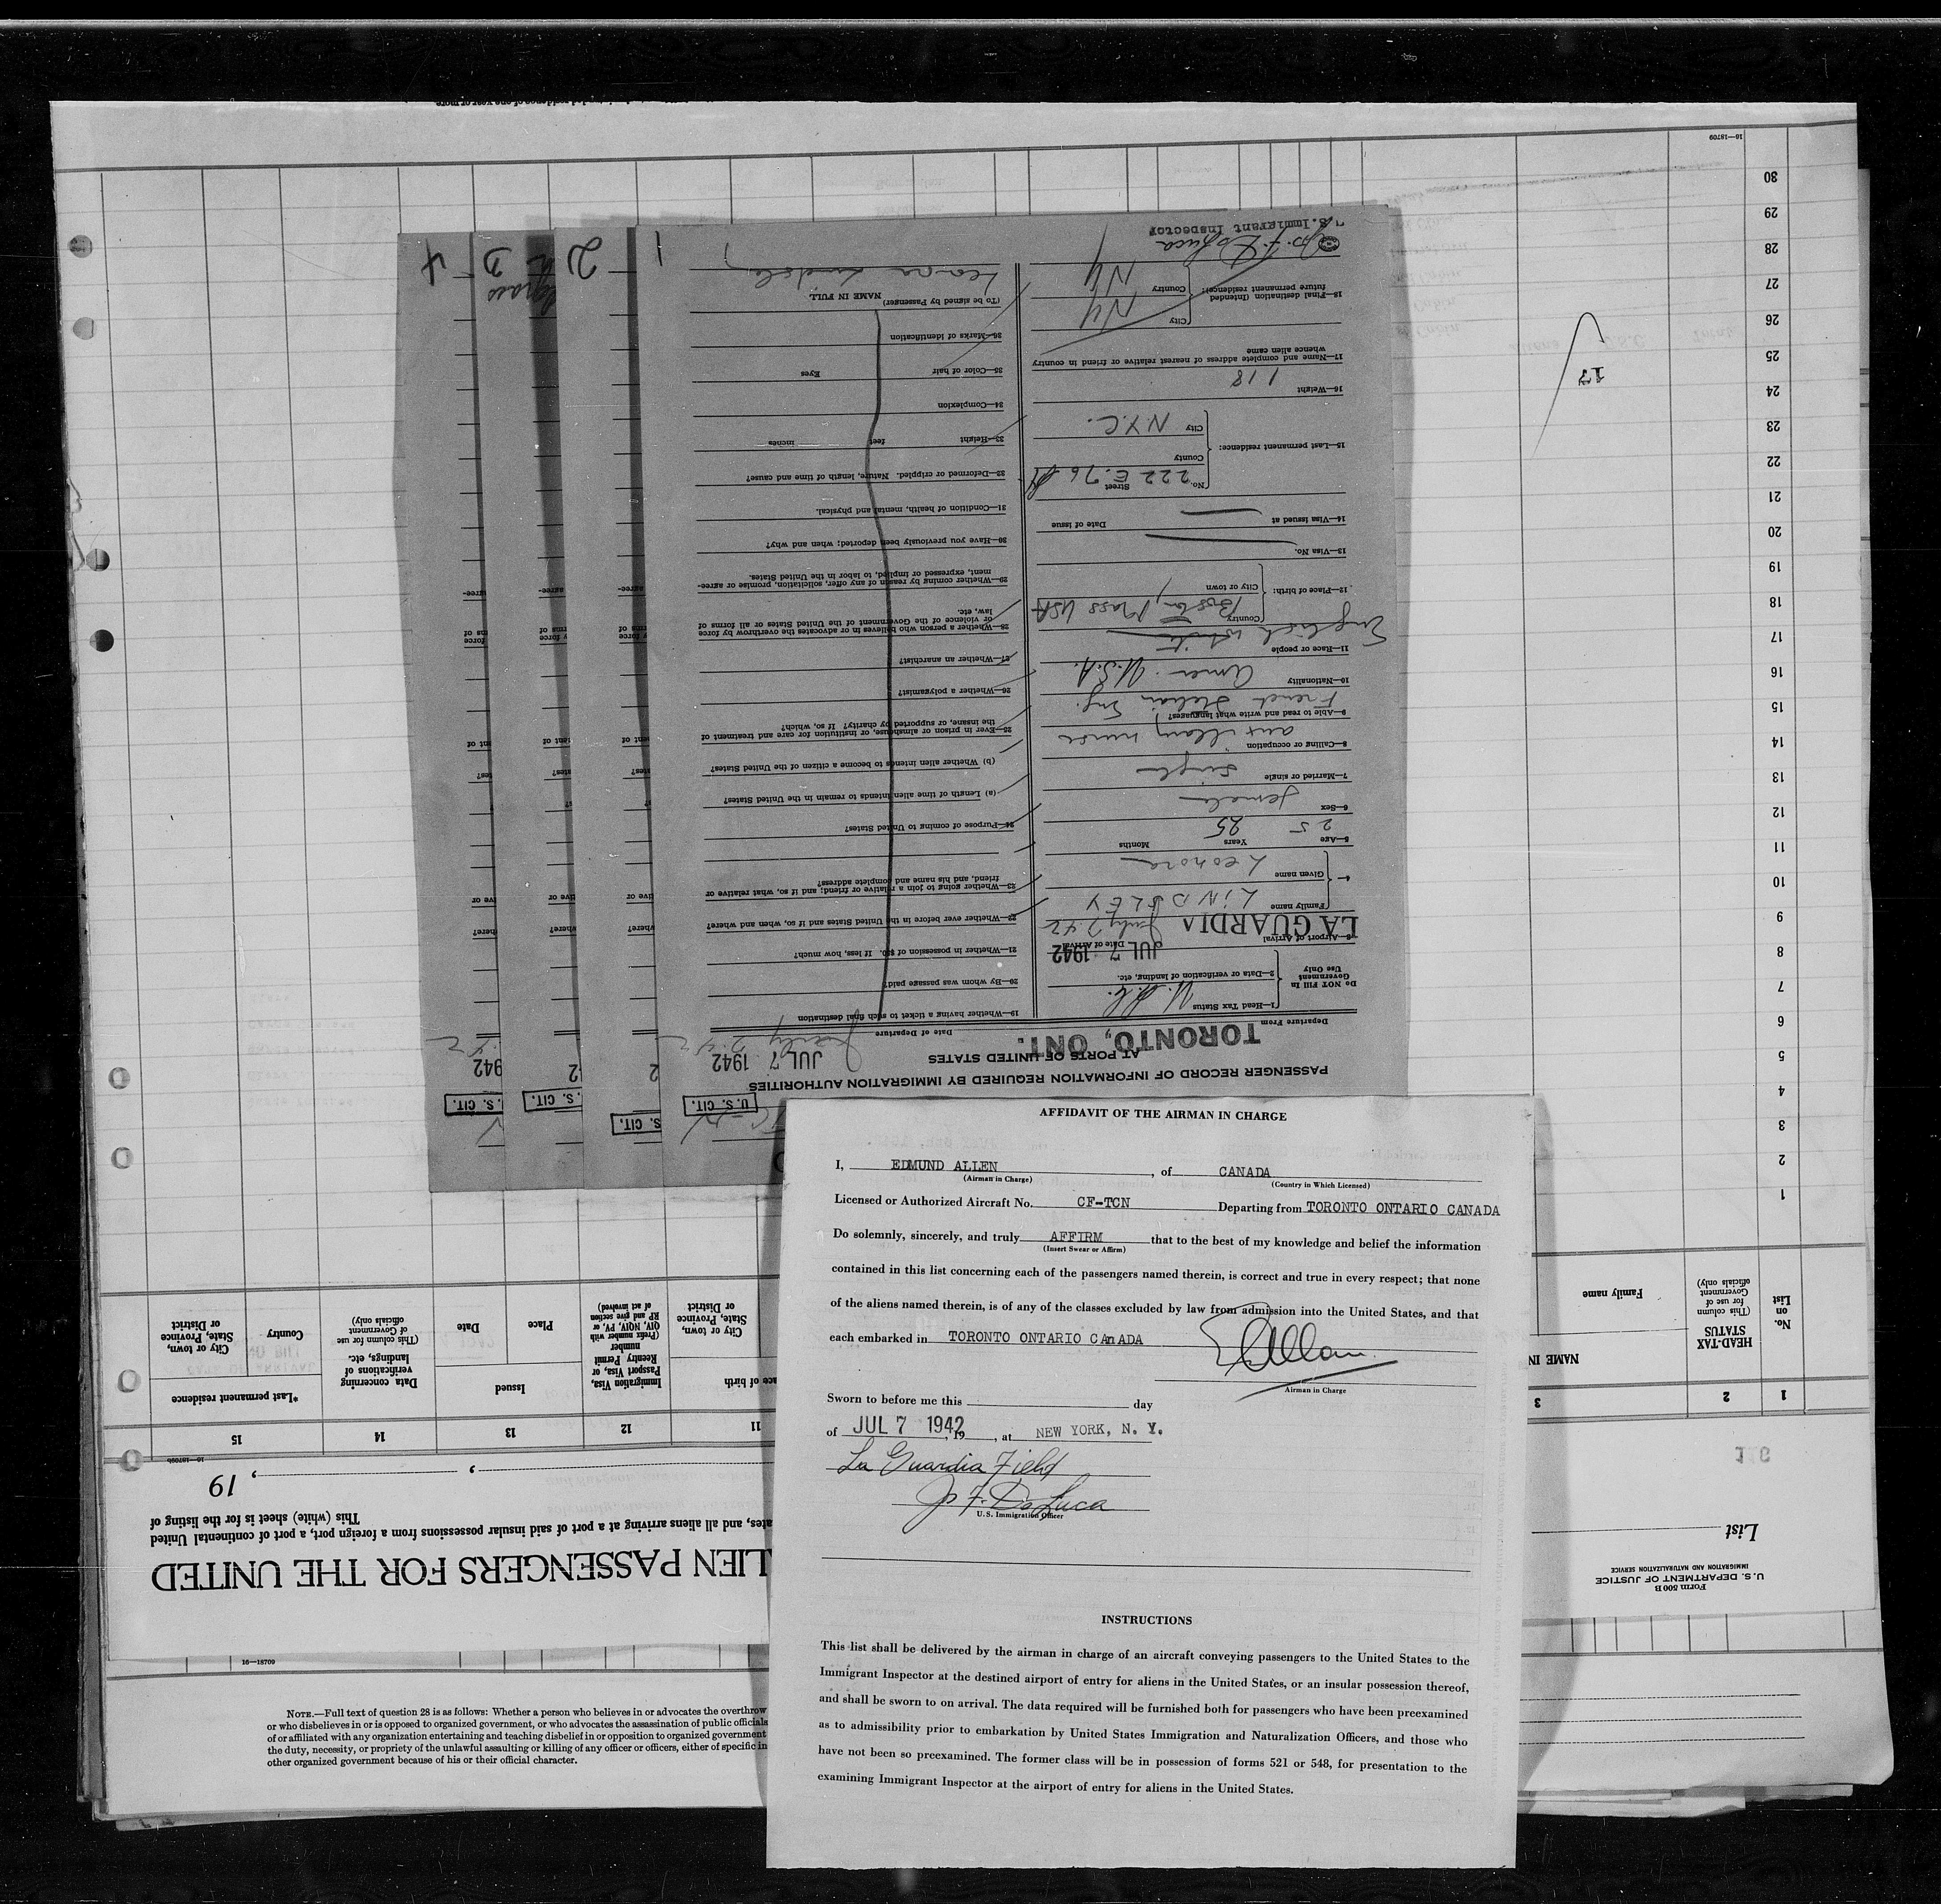 AFFIDAVIT OF THE AIRMAN IN CHARGE
I, EDMUND ALLEN, of CANADA
(Airman in Charge) (Country in Which Licensed)
Licensed or Authorized Aircraft No. CF-TCN Departing from TORONTO ONTARIO CANADA
Do solemnly, sincerely, and truly AFFIRM that to the best of my knowledge and belief the information
(Insert Swear or Affirm)
contained in this list concerning each of the passengers named therein, is correct and true in every respect; that none
of the aliens named therein, is of any of the classes excluded by law from admission into the United States, and that
each embarked in TORONTO ONTARIO CAnADA
EAllan
Airman in Charge
Sworn to before me this day
of JUL 7 1942, 19 , at NEW YORK, N. Y.
La Guardia Field
Jo F. DeLuca
U.S. Immigration Officer
INSTRUCTIONS
This list shall be delivered by the airman in charge of an aircraft conveying passengers to the United States to the
Immigrant Inspector at the destined airport of entry for aliens in the United States, or an insular possession thereof,
and shall be sworn to on arrival. The data required will be furnished both for passengers who have been preexamined
as to admissibility prior to embarkation by United States Immigration and Naturalization Officers, and those who
have not been so preexamined. The former class will be in possession of forms 521 or 548, for presentation to the
examining Immigrant Inspector at the airport of entry for aliens in the United States.
U.S. CIT.
PASSENGER RECORD OF INFORMATION REQUIRED BY IMMIGRATION AUTHORITIES
AT PORTS OF UNITED STATES
TORONTO, ONT. JUL 7 1942
July 7-42
Departure From Date of Departure
DO NOT FILL IN
Government
Use Only
1—Head Tax Status
2—Data or verification of landing, etc.
JUL 7 1942
3—Airport of Arrival Date of Arrival
LA GUARDIA July 7 42
4— Family name LINDSLEY
Given name Leonora
5—Age Years Months
25 25
6—Sex female
7—Married or single single
8—Calling or occupation auxillary nurse
9—Able to read and write what languages?
French Italian Eng.
10—Nationality Amer. U.S.A.
11—Race or people English white
12—Place of birth: Country City or town
Boston, Mass USA
13—Visa No.
14—Visa issued at Date of issue
15—Last permanent residence: No. Street 222 E. 76 St
County
City N.Y.C.
16—Weight 118
17—Name and complete address of nearest relative or friend in country
whence alien came
18—Final destination (Intended
future permanent residence): City NY
Country NY
Jo. F. DeLuca
U.S. Immigrant Inspector
19—Whether having a ticket to such final destination
20—By whom was passage paid?
21—Whether in possession of $50. If less, how much?
22—Whether ever before in the United States and if so, when and where?
23—Whether going to join a relative or friend; and if so, what relative or
friend, and his name and complete address?
24—Purpose of coming to United States?
(a) Length of time alien intends to remain in the United States?
(b) Whether alien intends to become a citizen of the United States?
25—Ever in prison or almshouse, or institution for care and treatment of
the insane, or supported by charity? If so, which?
26—Whether a polygamist?
27—Whether an anarchist?
28—Whether a person who believes in or advocates the overthrow by force
or violence of the Government of the United States or all forms of
law, etc.
29—Whether coming by reason of any offer, solicitation, promise or agree-
ment, expressed or implied, to labor in the United States.
30—Have you previously been deported; when and why?
31—Condition of health, mental and physical.
32—Deformed or crippled. Nature, length of time and cause?
33—Height feet inches
34—Complexion
35—Color of hair Eyes
36—Marks of identification
(To be signed by Passenger) NAME IN FULL
Leonora Lindsley
1
2
4
S. CIT.
. S. CIT.
. S. CIT.
Form 500 B
U. S. DEPARTMENT OF JUSTICE
IMMIGRATION AND NATURALIZATION SERVICE
List
LIEN PASSENGERS FOR THE UNITED
ates, and all aliens arriving at a port of said insular possessions from a foreign port, a port of continental United
This (white) sheet is for the listing of
, , 19
16—18709b
1 2 3 11 12 13 14 15
No. on List
HEAD-TAX STATUS
(This column for use of Government officials only)
NAME IN
Family name
ce of birth
City or town, State, Province or District
Immigration Visa, Passport Visa, or Reentry Permit number
(Prefix number with QIV, NQIV, PV, or RP and give section of act involved)
Issued
Place
Date
Data concerning verifications of landings, etc.
(This column for use of Government officials only)
*Last permanent residence
Country
City or town, State, Province or District
1
2
3
4
5
6
7
8
9
10
11
12
13
14
15
16
17
18
19
20
21
22
23
24
25
26
27
28
29
30
16—18709
16—18709
NOTE.—Full text of question 28 is as follows: Whether a person who believes in or advocates the overthrow
or who disbelieves in or is opposed to organized government, or who advocates the assassination of public officials
of or affiliated with any organization entertaining and teaching disbelief in or opposition to organized government
the duty, necessity, or propriety of the unlawful assaulting or killing of any officer or officers, either of specific in
other organized government because of his or their official character.